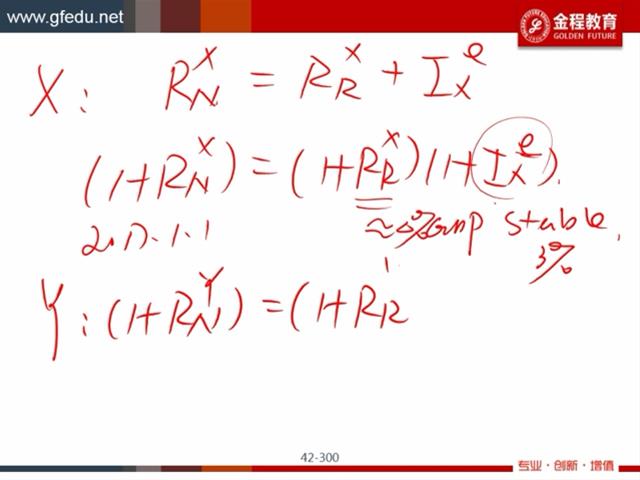 www.gfedu.net
金程教育
GOLDEN FUTURE
X: R_N^X = R_R^X + I_X^e
(1+R_N^X) = (1+R_R^X)(1+I_X^e).
stable,
3%
Y: (1+R_N^Y) = (1+R_R
42-300
专业·创新·增值